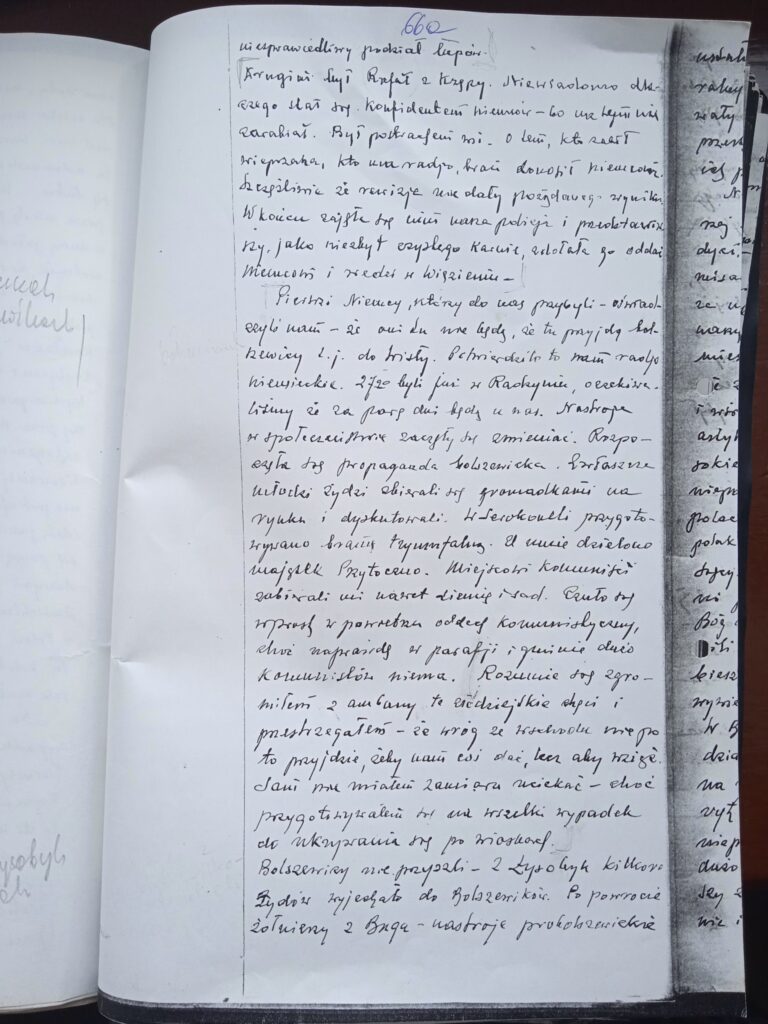 66a
niesprawiedliwy podział łupów.
Drugim był Rafał z Kępy. Niewiadomo dla-
czego stał się konfidentem niemców – bo na tym nie
zarabiał. Był postrachem wsi. O tem, kto zabił
wieprzaka, kto ma radjo, broń donosił niemcom.
Szczęśliwie że rewizje nie dały pożądanego wyniku.
W końcu zajęła się nim nasza policja i przedstawiw-
szy, jako niezbyt czystego karnie, zdołała go oddać
Niemcowi i siedzi w więzieniu –
Pierwsi Niemcy, którzy do nas przybyli – oświad-
czyli nam – że oni tu nie będą, że tu przyjdą bol-
szewicy t.j. do Wisły. Potwierdziło to nam radjo
niemieckie. 27 byli już w Radzyniu, oczekiwa-
liśmy że za parę dni będą u nas. Nastroje
w społeczeństwie zaczęły się zmieniać. Rozpo-
częła się propaganda bolszewicka. Zwłaszcza
młodzi żydzi zbierali się gromadkami na
rynku i dyskutowali. W Serokomli przygoto-
wywano bramę tryumfalną. U mnie dzielono
majątek Przytoczno. Miejscowi komuniści
zabierali mi nawet ziemię i sad. Czuło się
wprost w powietrzu oddech komunistyczny,
choć naprawdę w parafji i gminie dużo
komunistów niema. Rozumie się zgro-
miłem z ambony te złodziejskie chęci i
przestrzegałem – że wróg ze wschodu nie po
to przyjdzie, żeby nam coś dać, lecz aby wziąć.
Sam nie miałem zamiaru uciekać – choć
przygotowywałem się na wszelki wypadek
do ukrywania się po wioskach.
Bolszewicy nie przyszli – Z Łysobyk kilkoro
Żydów wyjechało do Bolszewików. Po powrocie
żołnierzy z Buga – nastroje probolszewickie